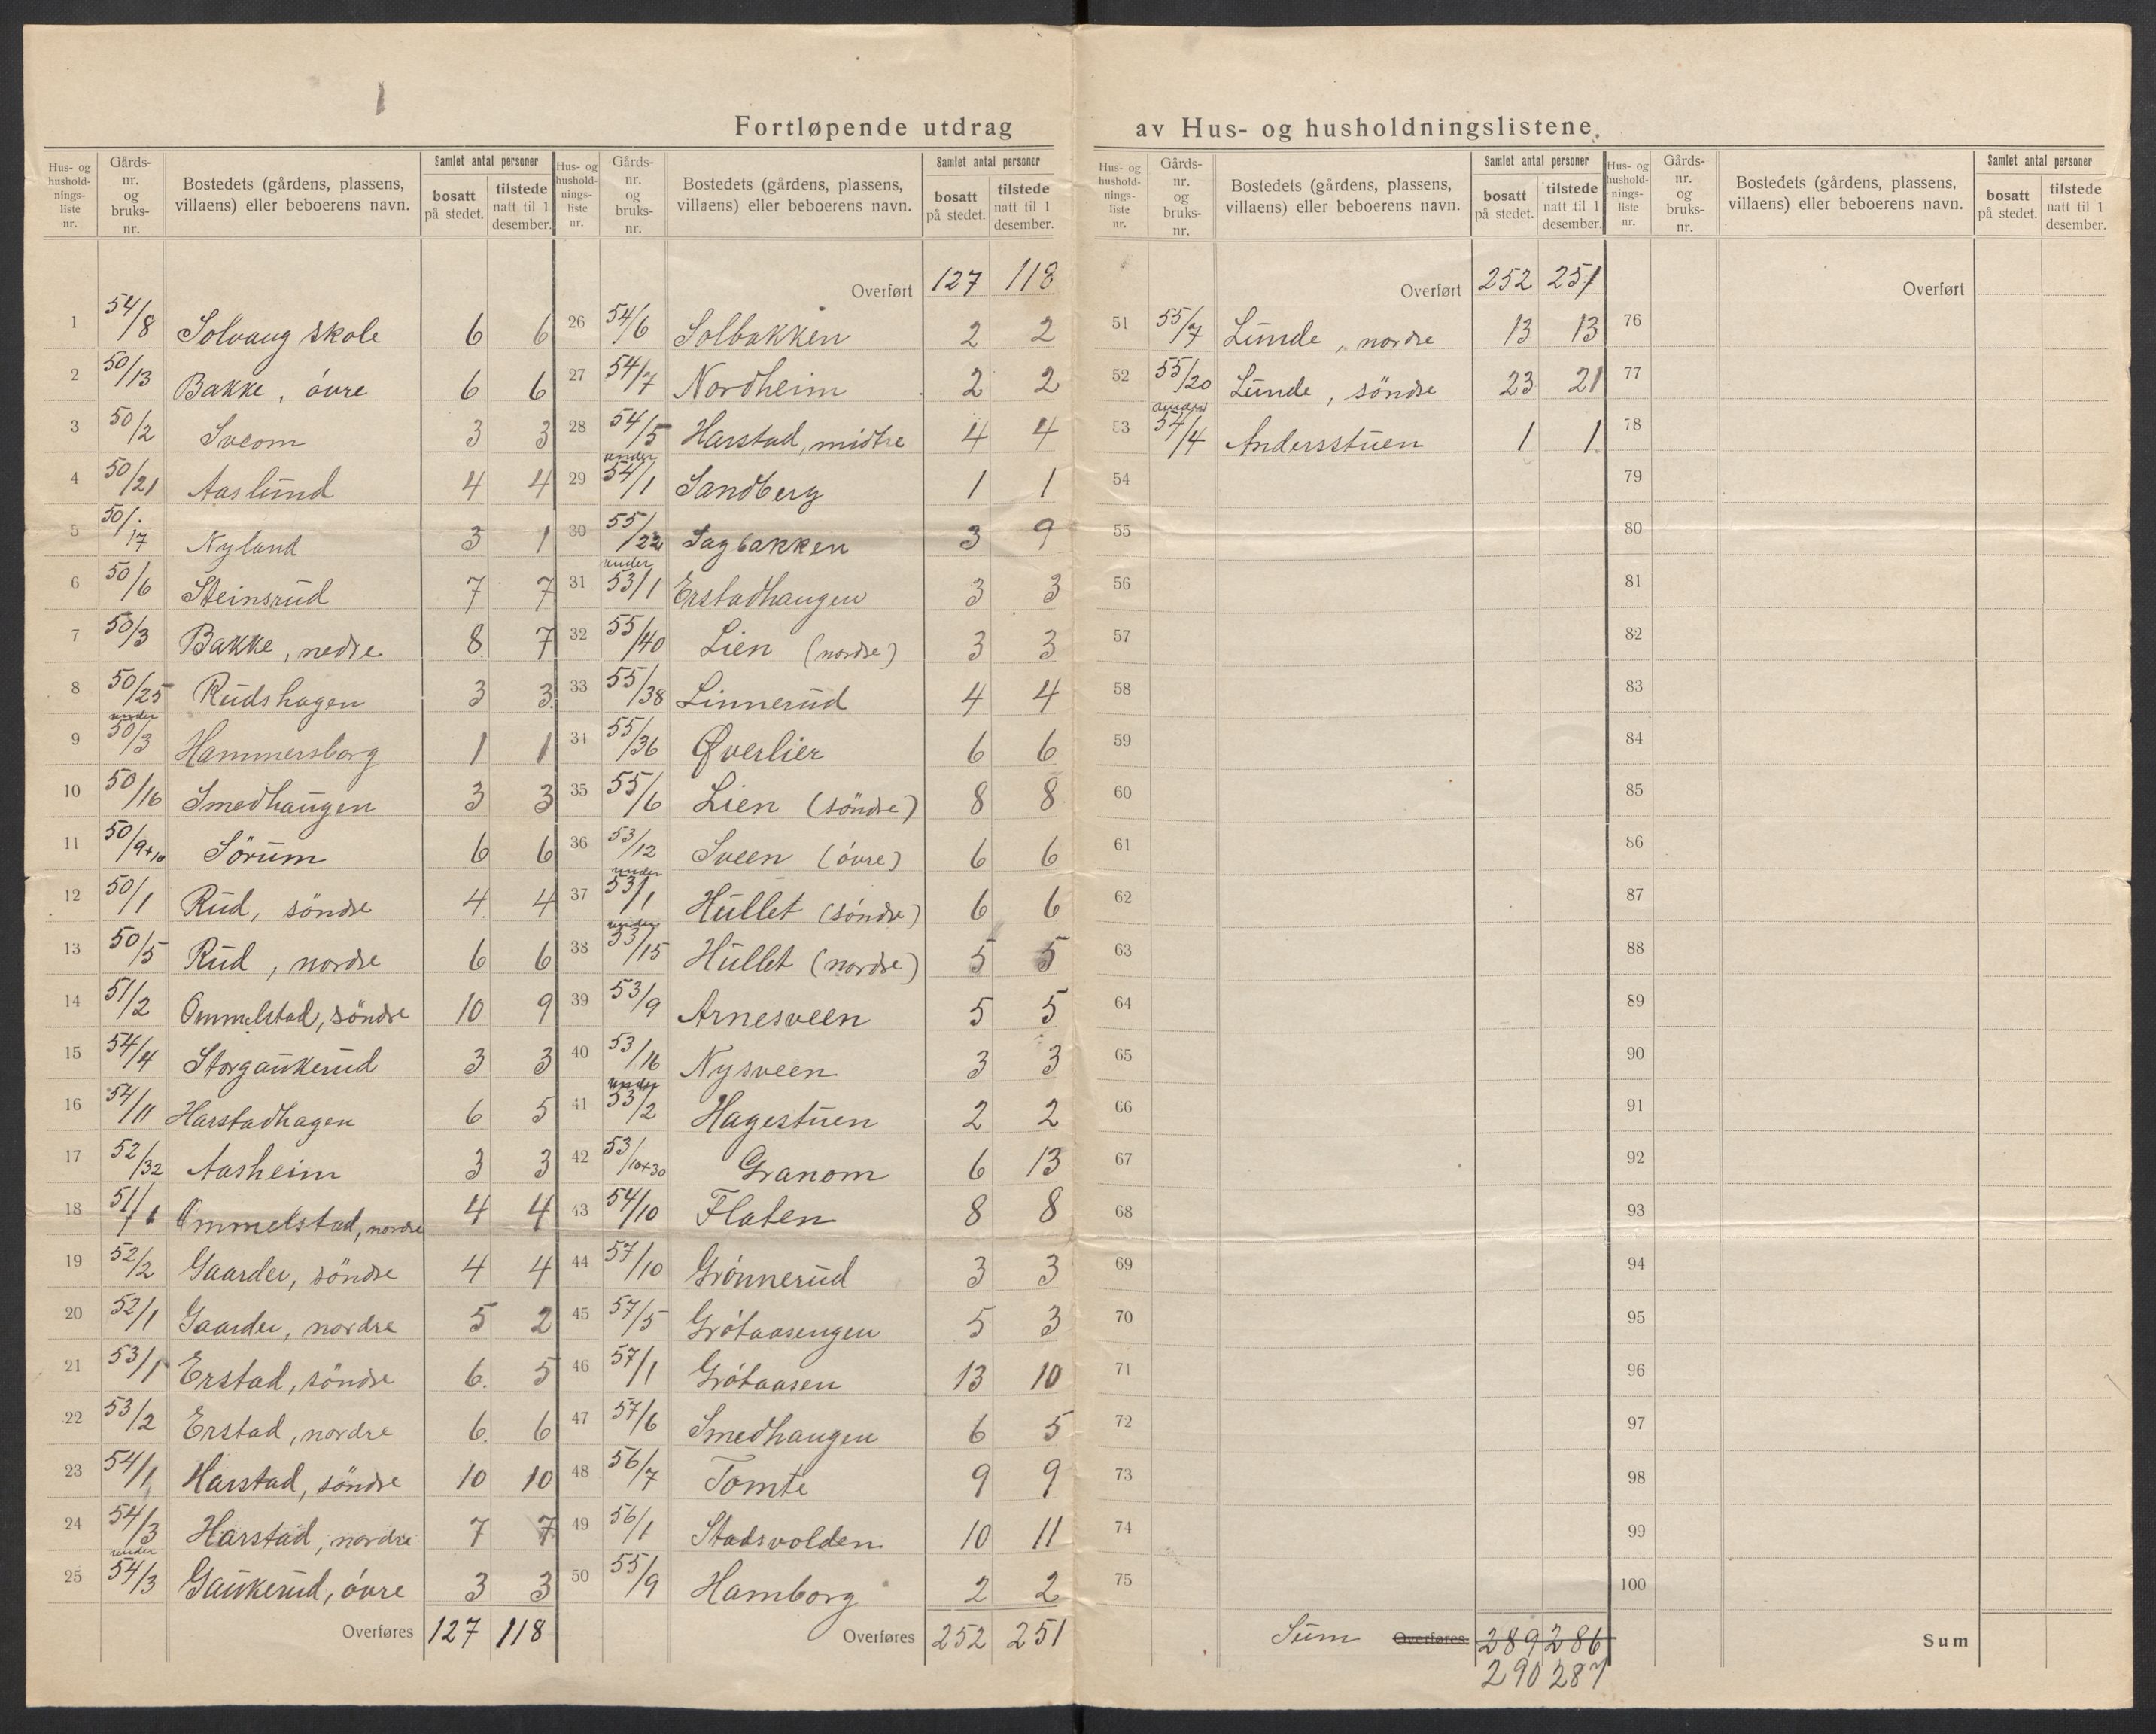 Fortløpende utdrag av Hus- og husholdningslistene.
Hus- og husholdnings-liste nr. | Gårds-nr. og bruks-nr. | Bostedets (gårdens, plassens, villaens) eller beboerens navn. | Samlet antal personer bosatt på stedet. | tilstede natt til 1 desember.
1 54/8 Solvang skole 6 6
2 50/13 Bakke, övre 6 6
3 50/2 Sveom 3 3
4 50/21 Aaslund 4 4
5 50/17 Nyland 3 1
6 50/6 Steinsrud 7 7
7 50/3 Bakke, nedre 8 7
8 50/25 Rudshagen 3 3
9 under 50/3 Hammersborg 1 1
10 50/16 Smedhaugen 3 3
11 50/9+10 Sörum 6 6
12 50/1 Rud, söndre 4 4
13 50/5 Rud, nordre 6 6
14 51/2 Ommelstad, söndre 10 9
15 54/4 Storgaukerud 3 3
16 54/11 Harstadhagen 6 5
17 52/32 Aasheim 3 3
18 51/1 Ommelstad, nordre 4 4
19 52/2 Gaarder, söndre 4 4
20 52/1 Gaarder, nordre 5 2
21 53/1 Erstad, söndre 6 5
22 53/2 Erstad, nordre 6 6
23 54/1 Harstad, söndre 10 10
24 54/3 Harstad, nordre 7 7
25 under 54/3 Gaukerud, övre 3 3
Overføres 127 118
Hus- og husholdnings-liste nr. | Gårds-nr. og bruks-nr. | Bostedets (gårdens, plassens, villaens) eller beboerens navn. | Samlet antal personer bosatt på stedet. | tilstede natt til 1 desember.
Overført 127 118
26 54/6 Solbakken 2 2
27 54/7 Nordheim 2 2
28 54/5 Harstad, midtre 4 4
29 under 54/1 Sandberg 1 1
30 55/22 Sagbakken 3 9
31 under 53/1 Erstadhaugen 3 3
32 55/40 Lien (nordre) 3 3
33 55/38 Linnerud 4 4
34 55/36 Øverlier 6 6
35 55/6 Lien (söndre) 8 8
36 53/12 Sveen (övre) 6 6
37 under 53/1 Hullet (söndre) 6 6
38 under 53/15 Hullet (nordre) 5 5
39 53/9 Arnesveen 5 5
40 53/16 Nysveen 3 3
41 under 53/2 Hagestuen 2 2
42 53/10+30 Granom 6 13
43 54/10 Flaten 8 8
44 57/10 Grönnerud 3 3
45 57/5 Grötaasengen 5 3
46 57/1 Grötaasen 13 10
47 57/6 Smedhaugen 6 5
48 56/7 Tomte 9 9
49 56/1 Stadsvolden 10 11
50 55/9 Hamborg 2 2
Overføres 252 251
Hus- og husholdnings-liste nr. | Gårds-nr. og bruks-nr. | Bostedets (gårdens, plassens, villaens) eller beboerens navn. | Samlet antal personer bosatt på stedet. | tilstede natt til 1 desember.
Overført 252 251
51 55/7 Lunde, nordre 13 13
52 55/20 Lunde, söndre 23 21
53 under 54/4 Andersstuen 1 1
54
55
56
57
58
59
60
61
62
63
64
65
66
67
68
69
70
71
72
73
74
75
Sum Overføres 289 286
290 287
Hus- og husholdnings-liste nr. | Gårds-nr. og bruks-nr. | Bostedets (gårdens, plassens, villaens) eller beboerens navn. | Samlet antal personer bosatt på stedet. | tilstede natt til 1 desember.
Overført
76
77
78
79
80
81
82
83
84
85
86
87
88
89
90
91
92
93
94
95
96
97
98
99
100
Sum